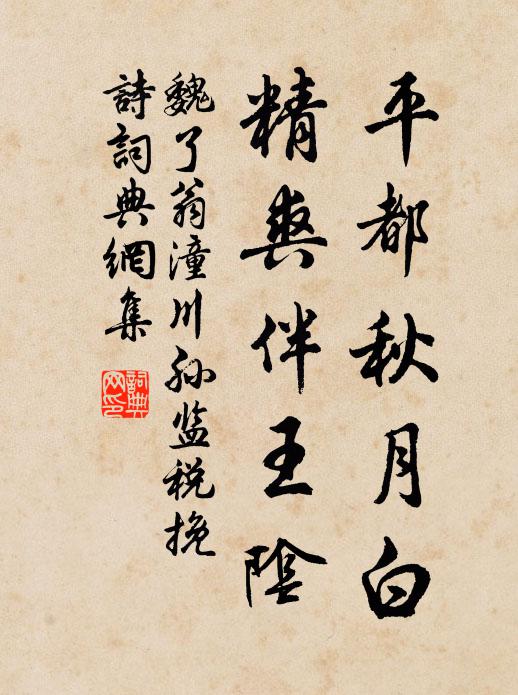 平都秋月白
精爽伴王陰
魏了翁潼川孙监税挽
詩詞典網集
詞典
网印